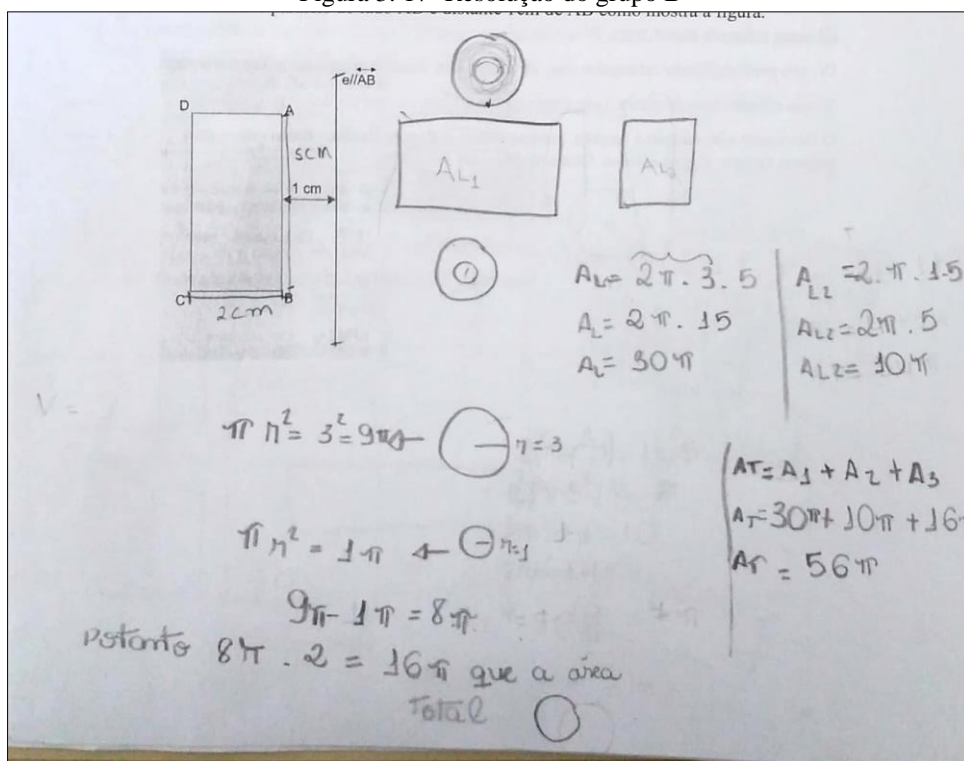 D
A
e//AB
5CM
1 cm
C
B
2cm
AL1
AL2
AL= 2π. 3. 5
AL= 2π. 15
AL= 30π
AL2 =2. π. 1.5
AL2= 2π. 5
AL2= 10π
V =
π r²= 3²=9π
r=3
π r² = 1π
r=1
9π- 1π = 8π
Potanto 8π . 2 = 16π que a área
Total
AT= A1 + A2 + A3
AT=30π+ 10π + 16
AT = 56π